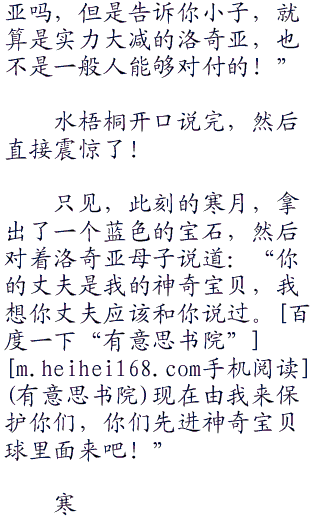 亚吗，但是告诉你小子，就
算是实力大减的洛奇亚，也
不是一般人能够对付的！”
水梧桐开口说完，然后
直接震惊了！
只见，此刻的寒月，拿
出了一个蓝色的宝石，然后
对着洛奇亚母子说道：“你
的丈夫是我的神奇宝贝，我
想你丈夫应该和你说过。[百
度一下“有意思书院”]
[m.heihei168.com手机阅读]
(有意思书院)现在由我来保
护你们，你们先进神奇宝贝
球里面来吧！”
寒